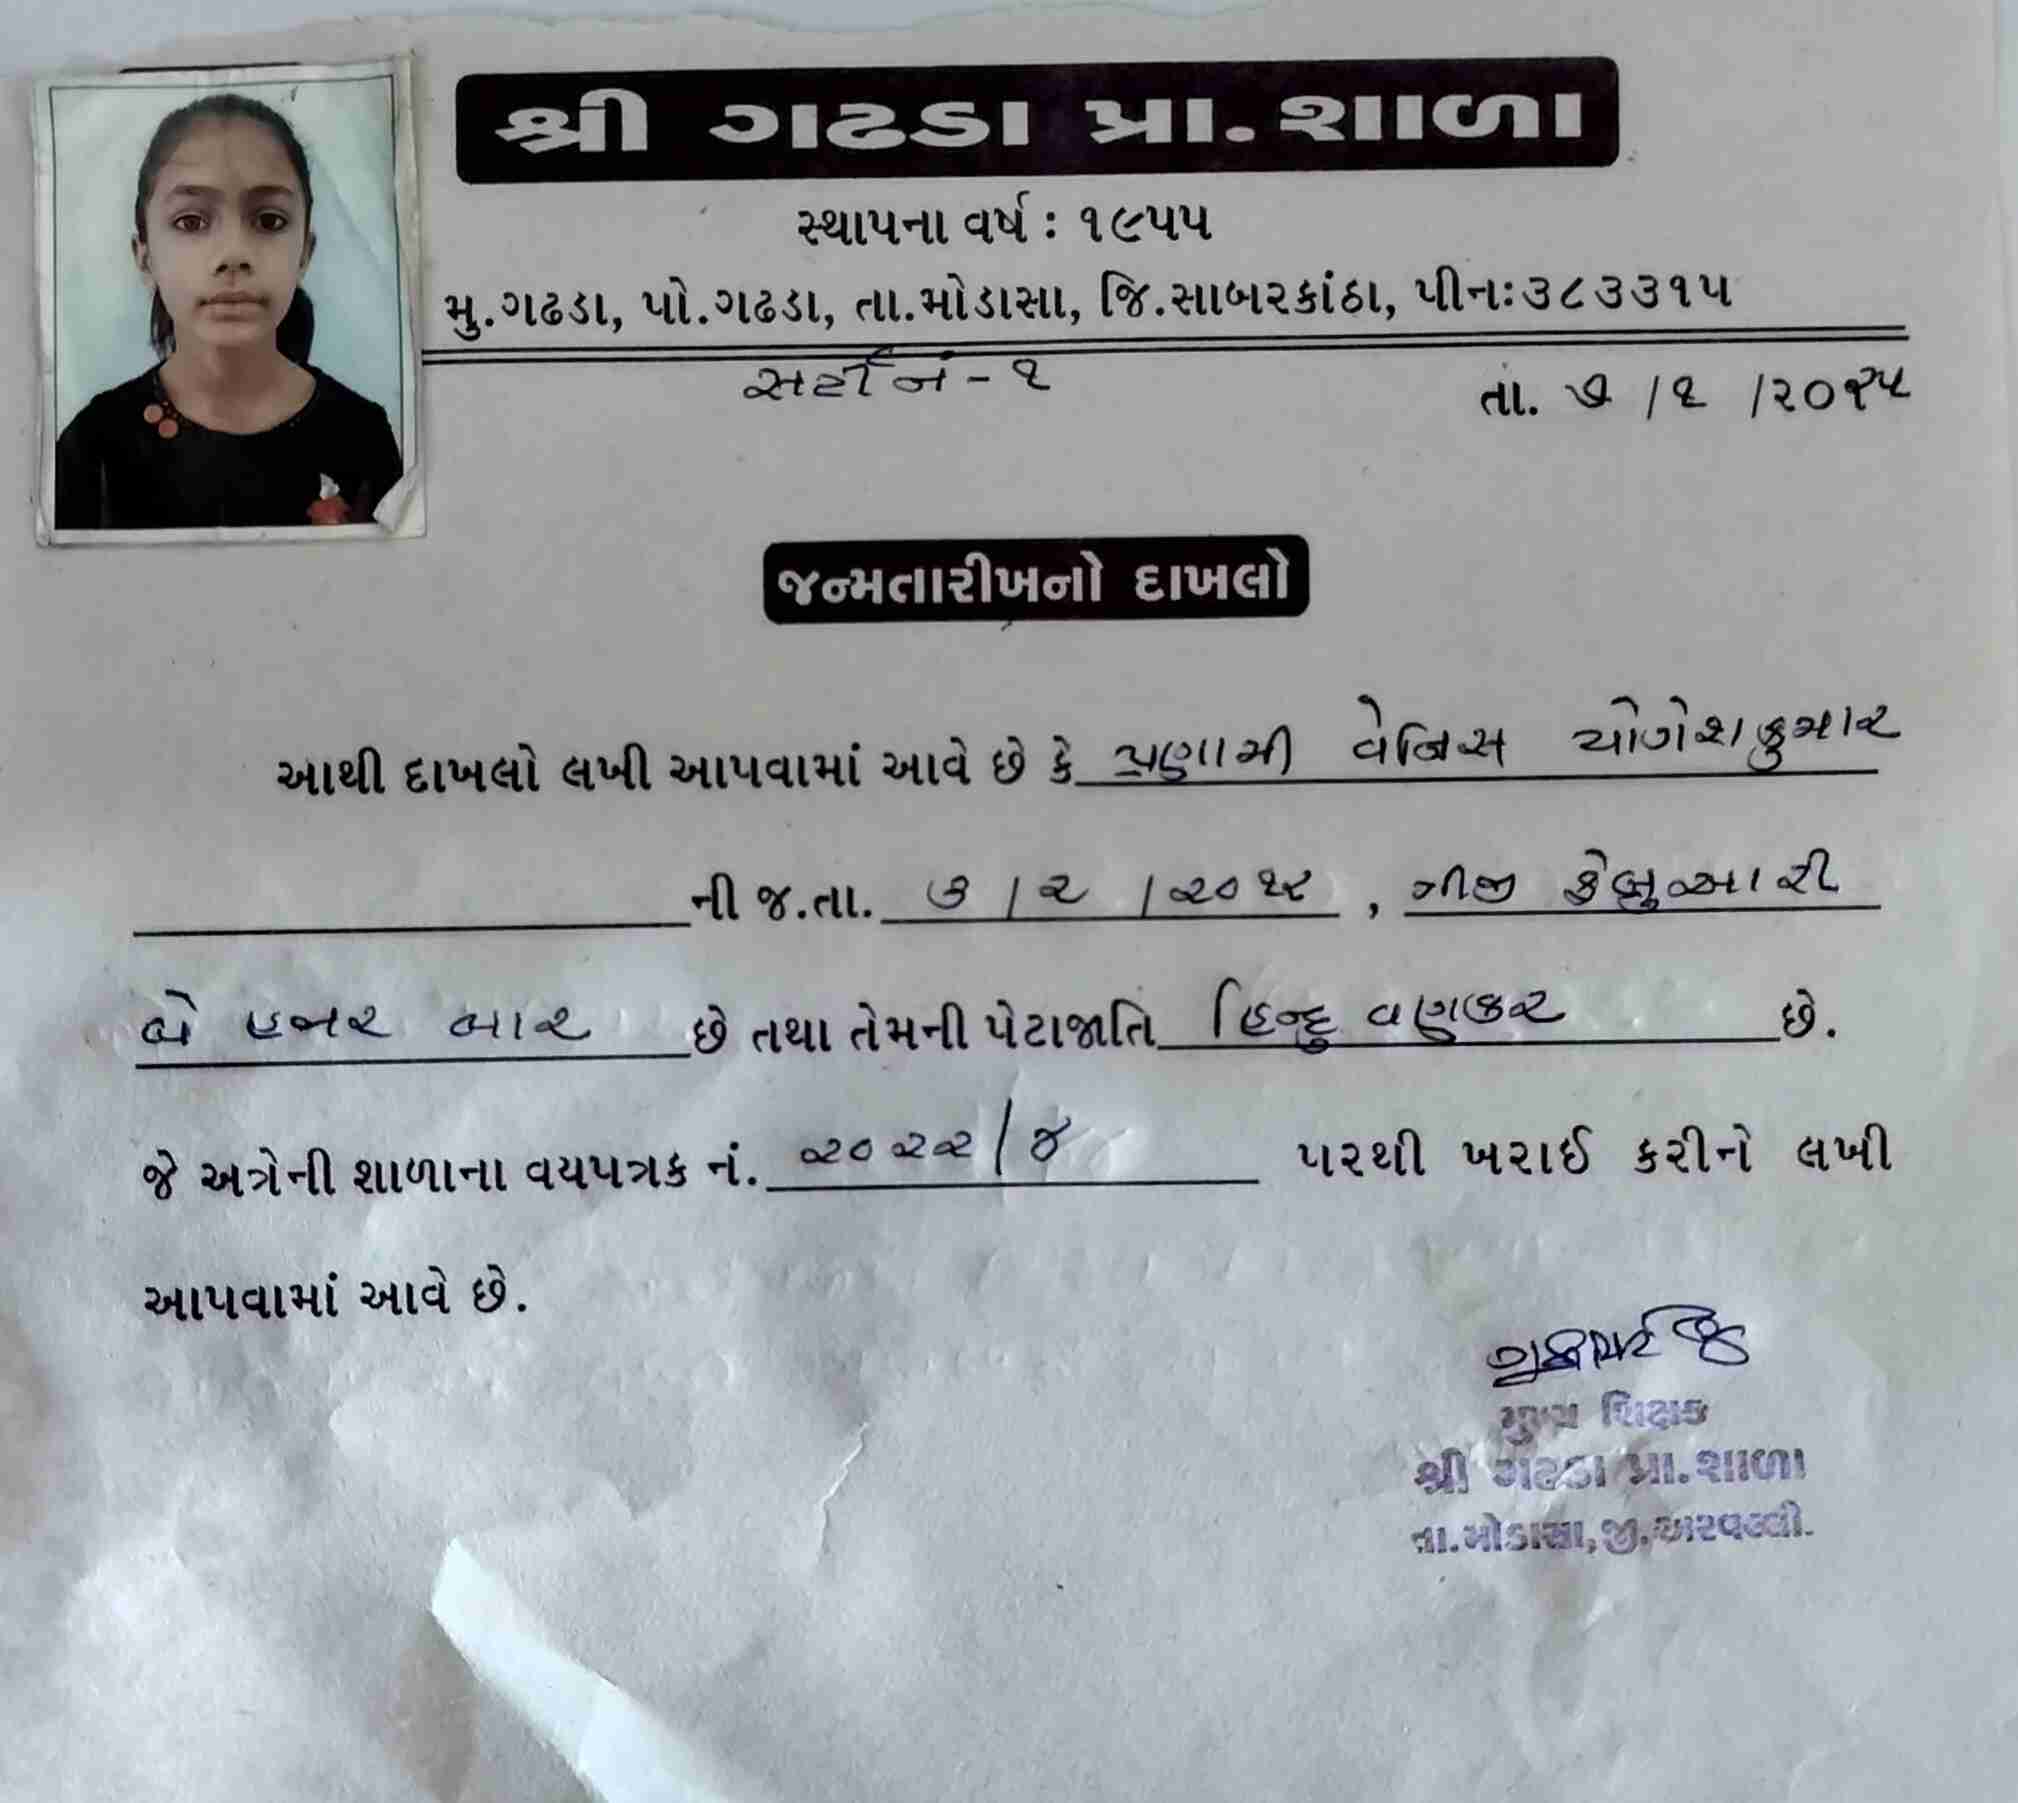 શ્રી ગઢડા પ્રા.શાળા
સ્થાપના વર્ષ : ૧૯૫૫
મુ.ગઢડા, પો.ગઢડા, તા.મોડાસા, જિ.સાબરકાંઠા, પીન:૩૮૩૩૧૫
સર્ટી નં - ૧
તા. ૭ / ૧ / ૨૦૨૫
જન્મતારીખનો દાખલો
આથી દાખલો લખી આપવામાં આવે છે કે પ્રણામી વેનિસ યોગેશકુમાર
ની જ.તા. ૩ / ૨ / ૨૦૧૨ , ત્રીજી ફેબ્રુઆરી
બે હજાર બાર છે તથા તેમની પેટાજાતિ હિન્દુ વણકર છે.
જે અત્રેની શાળાના વયપત્રક નં. ૨૦૨૨/૪ પરથી ખરાઈ કરીને લખી
આપવામાં આવે છે.
મુખ્ય શિક્ષક
શ્રી ગઢડા પ્રા.શાળા
તા.મોડાસા,જી.અરવલ્લી.